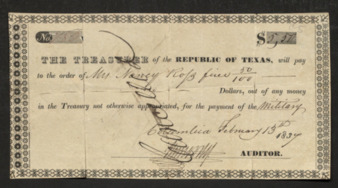 No
$5.50
THE TREASURER of the REPUBLIC OF TEXAS, will pay
to the order of Mrs Nancy Ross five 50/100
Dollars, out of any money
in the Treasury not otherwise appropriated, for the payment of the Military
Columbia February 13th 1837
AUDITOR.